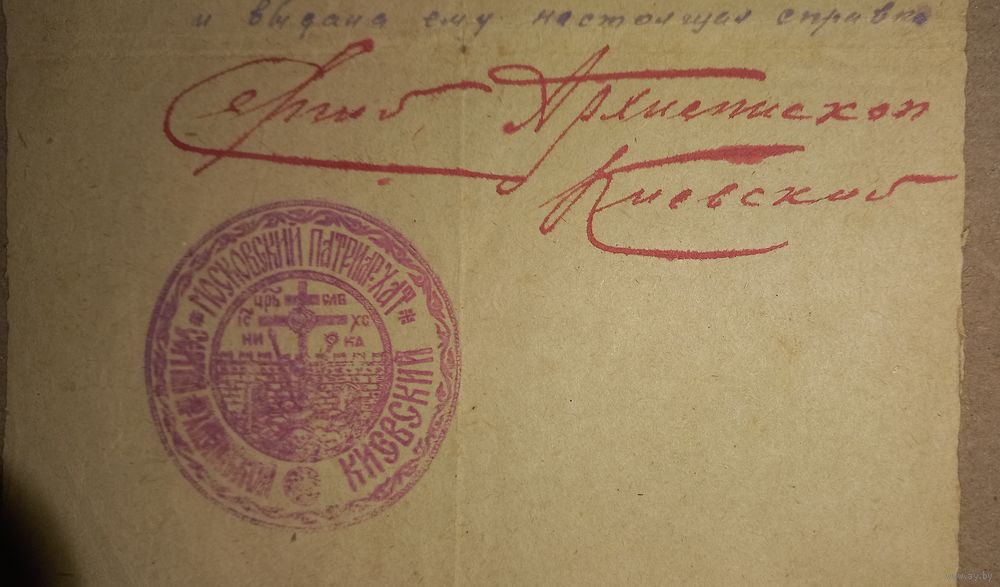 и выдана ему настоящая справка
Сергий Архиепископ
Киевский
* МОСКОВСКИЙ ПАТРИАРХАТ *
КИЕВСКИЙ
ЦРЬ СЛВ
ІС ХС
НИ КА
www.ay.by